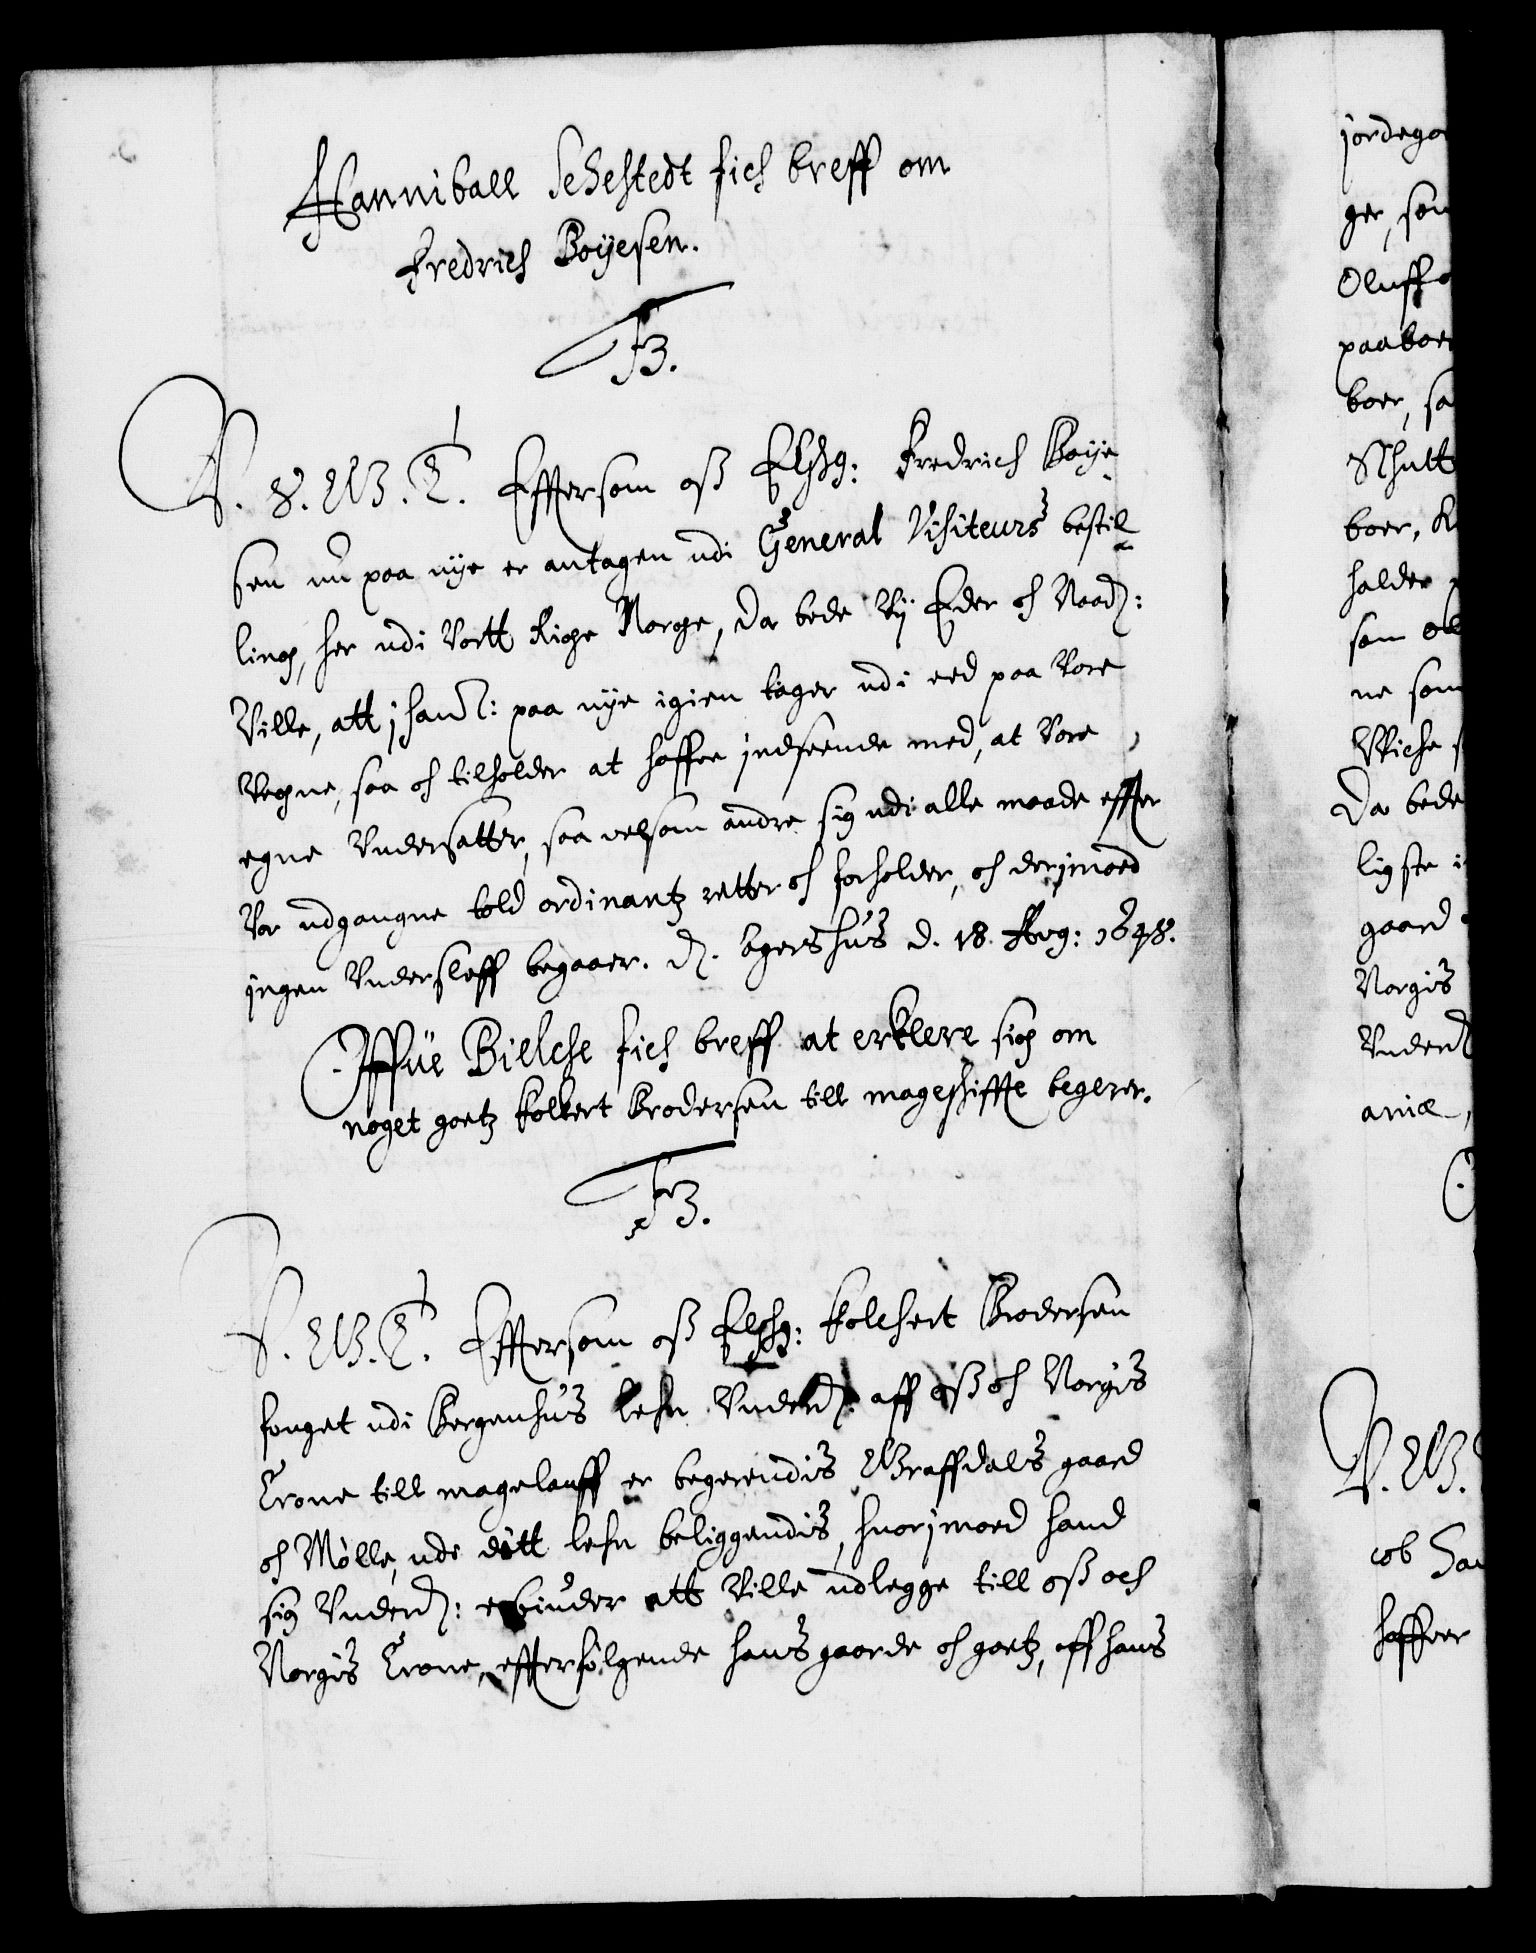 Hanniball Sehestedt fich breff om
Fredrich Boÿesen.
F3.
V. S. W. G. T. Efftersom oß Elschg: Fredrich Boÿe-
sen nu paa nÿe er antagen udi General Visiteurs bestil-
ling, her udi Vortt Rige Norge, Da bede Vij Eder och Naad:
Ville, att j hannem: paa nÿe igien tager udi eed paa Vore
Vegne, saa och tilholder at haffue jndseende med, at Vore
egne Vndersatter, saa velsom andre sig udi alle maade effter
Vor udgangne told ordinantz retter och forholder, och derjmoed
jngen Vnderslæff begaaer. D. Agershuus d. 18. Aug: 1648.
Offue Bielche fich breff at erklere sig om
noget goetz Folkert Brodersen till mageschiffte begerer.
F3.
V. W. G. T. Efftersom oß Elschg: Folchert Brodersen
fouget udi Bergenhuus Lehn Vnderd: aff oß och Norgis
Crone till magelauff er begerendis Graffdals gaard
och Mølle, udi ditt lehn beliggendis, huorjmoed hand
sig Vnderd: erbiuder att Ville udlegge till oß och
Norgis Crone, effterfølgende hans gaarde och goetz, aff hans
jordego
ger, som
Oluff
paaboe
boer, sa
boer,
holder
som
ne som
Da bede
ligste i
gaard
Norgis
Vnderd
aniæ,
V. W.
cob
haffuer